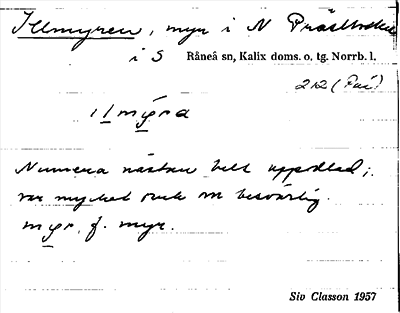 Illmyren, myr i N Prästholm
i S Råneå sn, Kalix doms. o. tg. Norrb. l.
212 (Pui)
ılmỹra
Numera nästan helt uppodlad;
var mycket svår om besvärlig.
myr, f. myr.
Siv Classon 1957